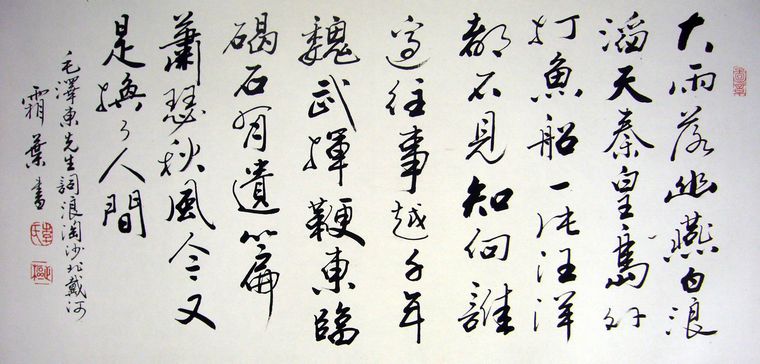 大雨落幽燕白浪
滔天秦皇島外
打魚船一片汪洋
都不見知向誰
邊往事越千年
魏武揮鞭東臨
碣石有遺篇
蕭瑟秋風今又
是換了人間
毛澤東先生詞浪淘沙北戴河
霜葉書